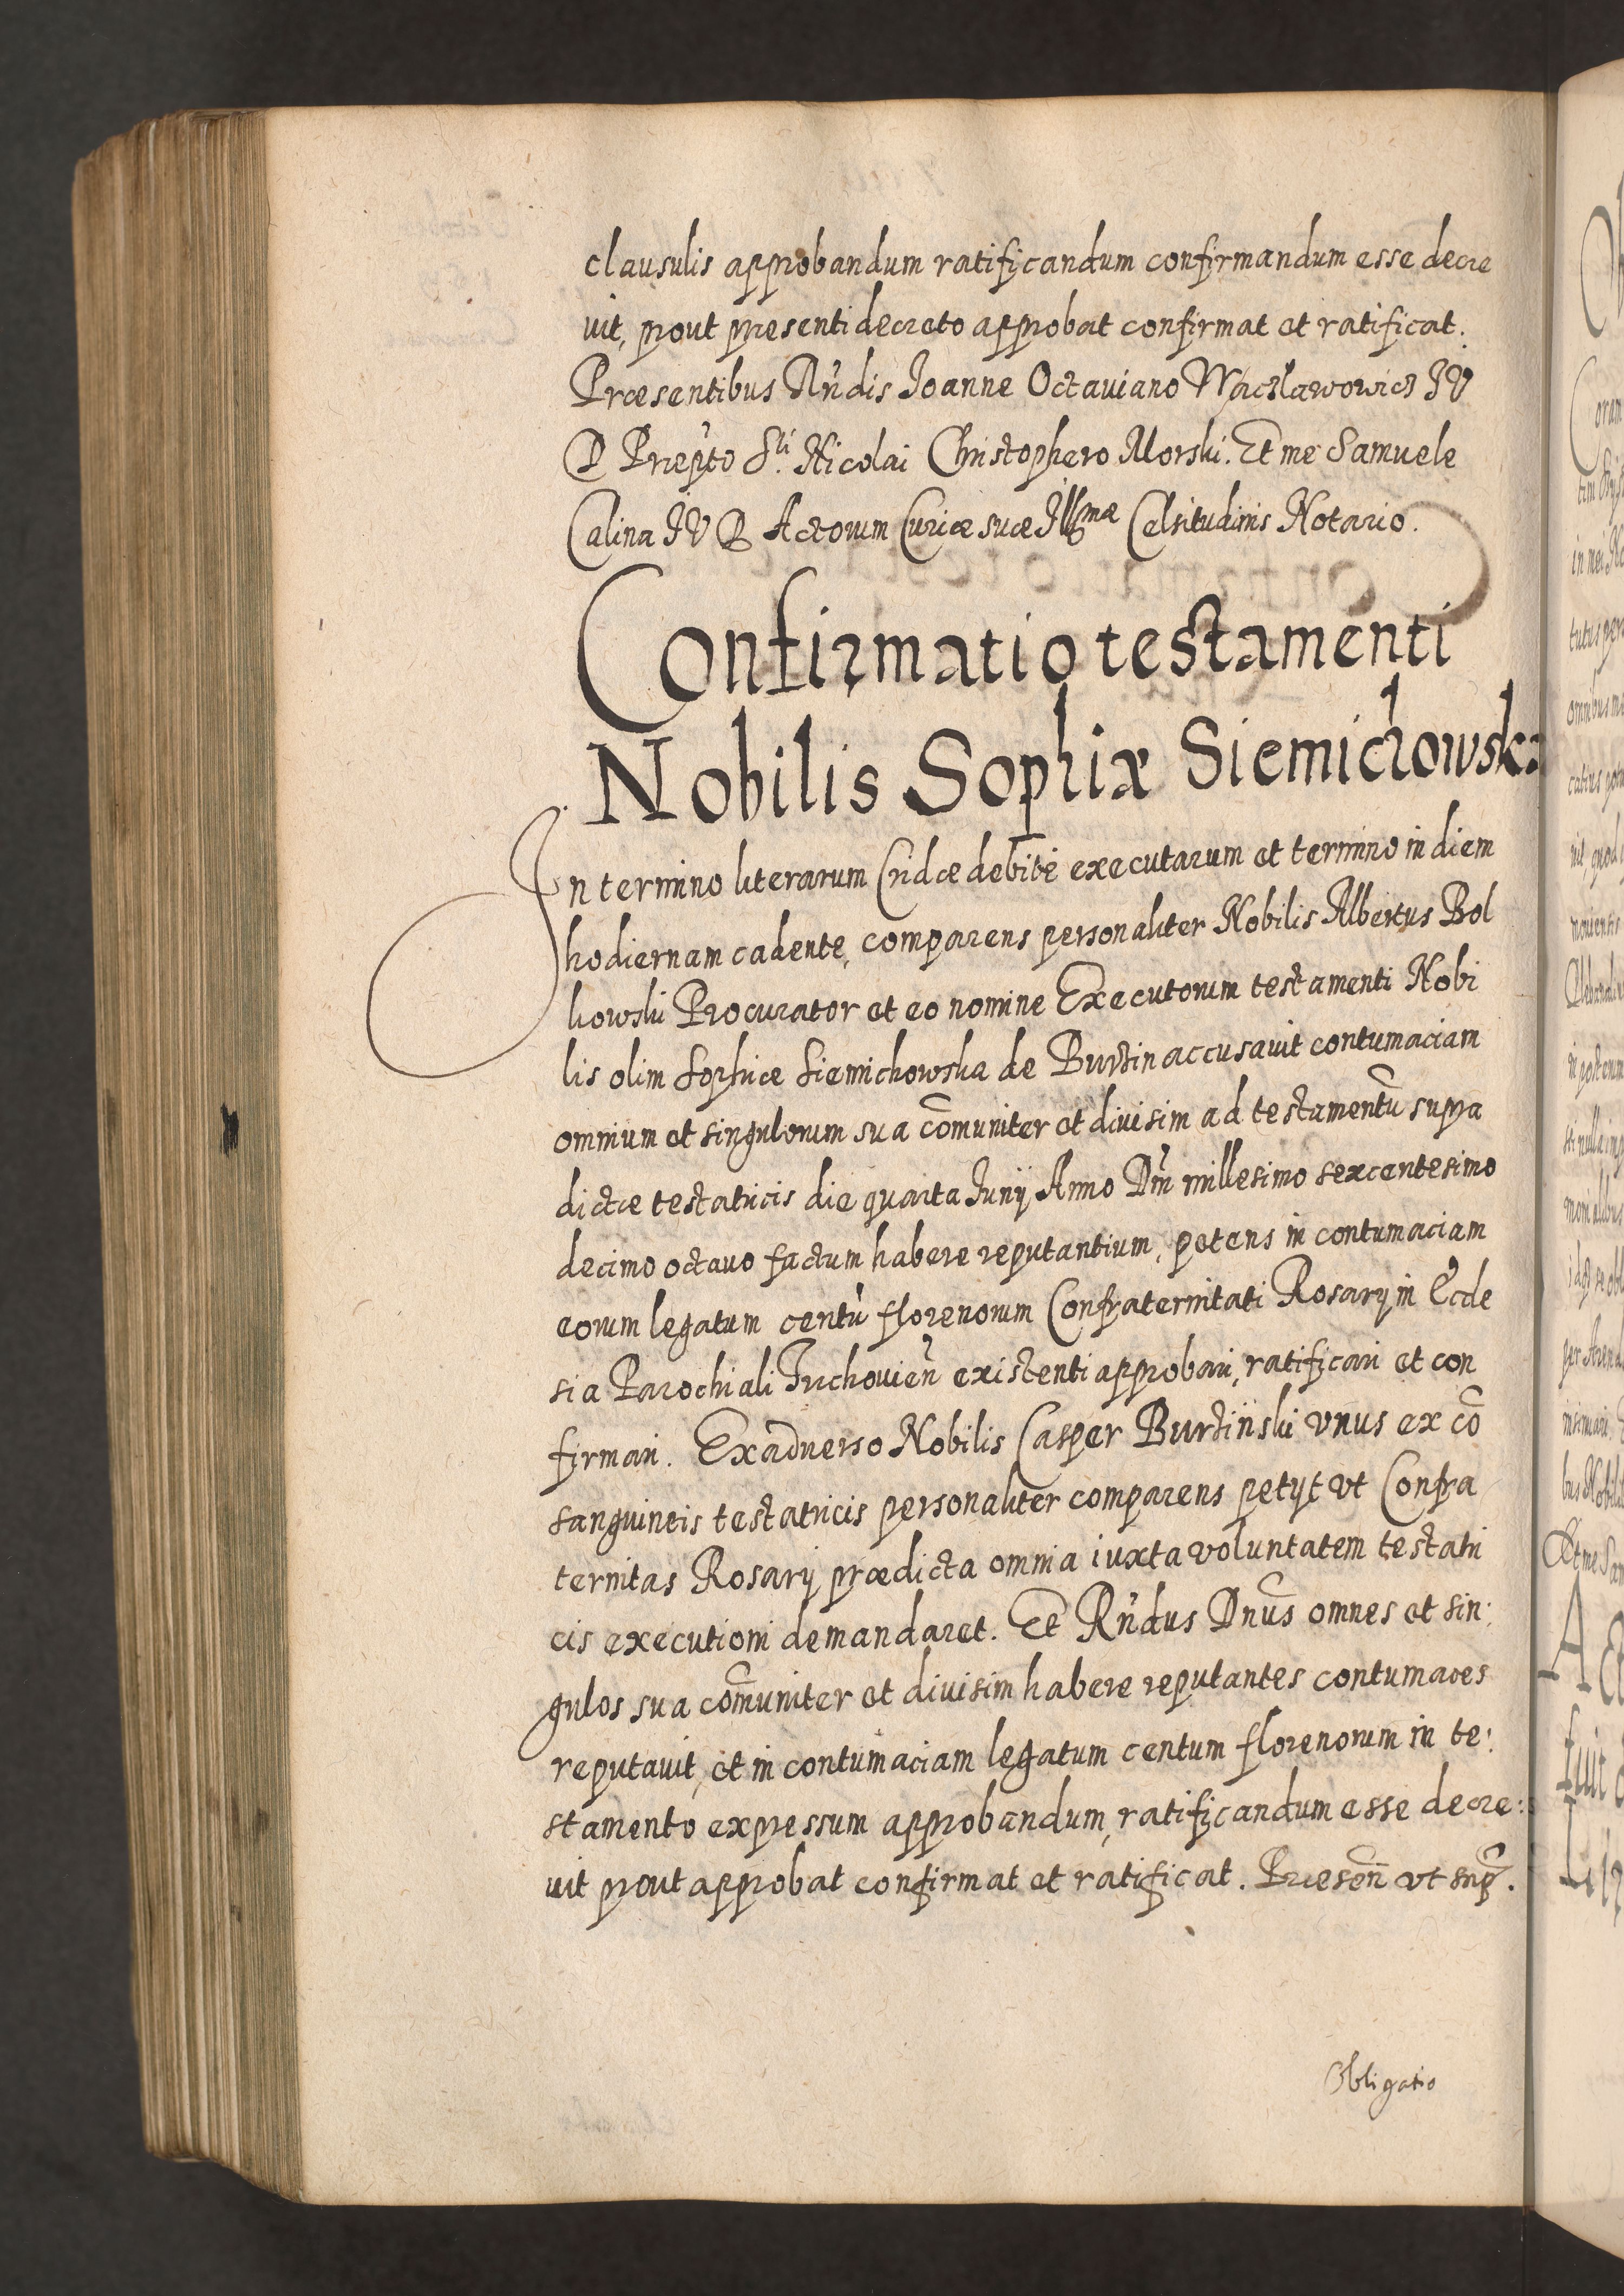 clausulis approbandum ratificandum confirmandum esse decre
uit, prout presenti decreto approbat confirmat et ratificat.
Præsentibus Rńdis Joanne Octauiano Waczlawowicz JV
D Præpto Sti Nicolai Christophero Morski. Et me Samuele
Calina JVD Actorum Curiæ suæ Illmæ Celsitudinis Notario.
Confirmatio testamenti
Nobilis Sophiæ Siemichowska
In termino literarum Cridæ debitè executarum et termino in diem
hodiernam cadente, comparens personaliter Nobilis Albertus Bol
kowski Procurator et eo nomine Executorum testamenti Nobi
lis olim Sophiæ Siemichowska de Burzin accusauit contumaciam
omnium et singulorum sua cōmuniter et diuisim ad testamentū supra
dictæ testatricis die quarta Junij Anno Dni millesimo sexcentesimo
decimo octauo factum habere reputantium, petens in contumaciam
eorum legatum centū florenorum Confraternitati Rosarij in Eccle
sia Parochiali Tuchouien existenti approbari, ratificari et con
firmari. Ex aduerso Nobilis Casper Burzinski vnus ex cō
sanguineis testatricis personaliter comparens petijt vt Confra
ternitas Rosarij prædicta omnia iuxta voluntatem testatri
cis executioni demandaret. Et Rńdus Dnūs omnes et sin:
gulos sua cōmuniter et diuisim habere reputantes contumaces
reputauit, et in contumaciam legatum centum florenorum in te:
stamento expressum approbandum, ratificandum esse decre:
uit prout approbat confirmat et ratificat. Præsen̄ vt supr.
Obligatio